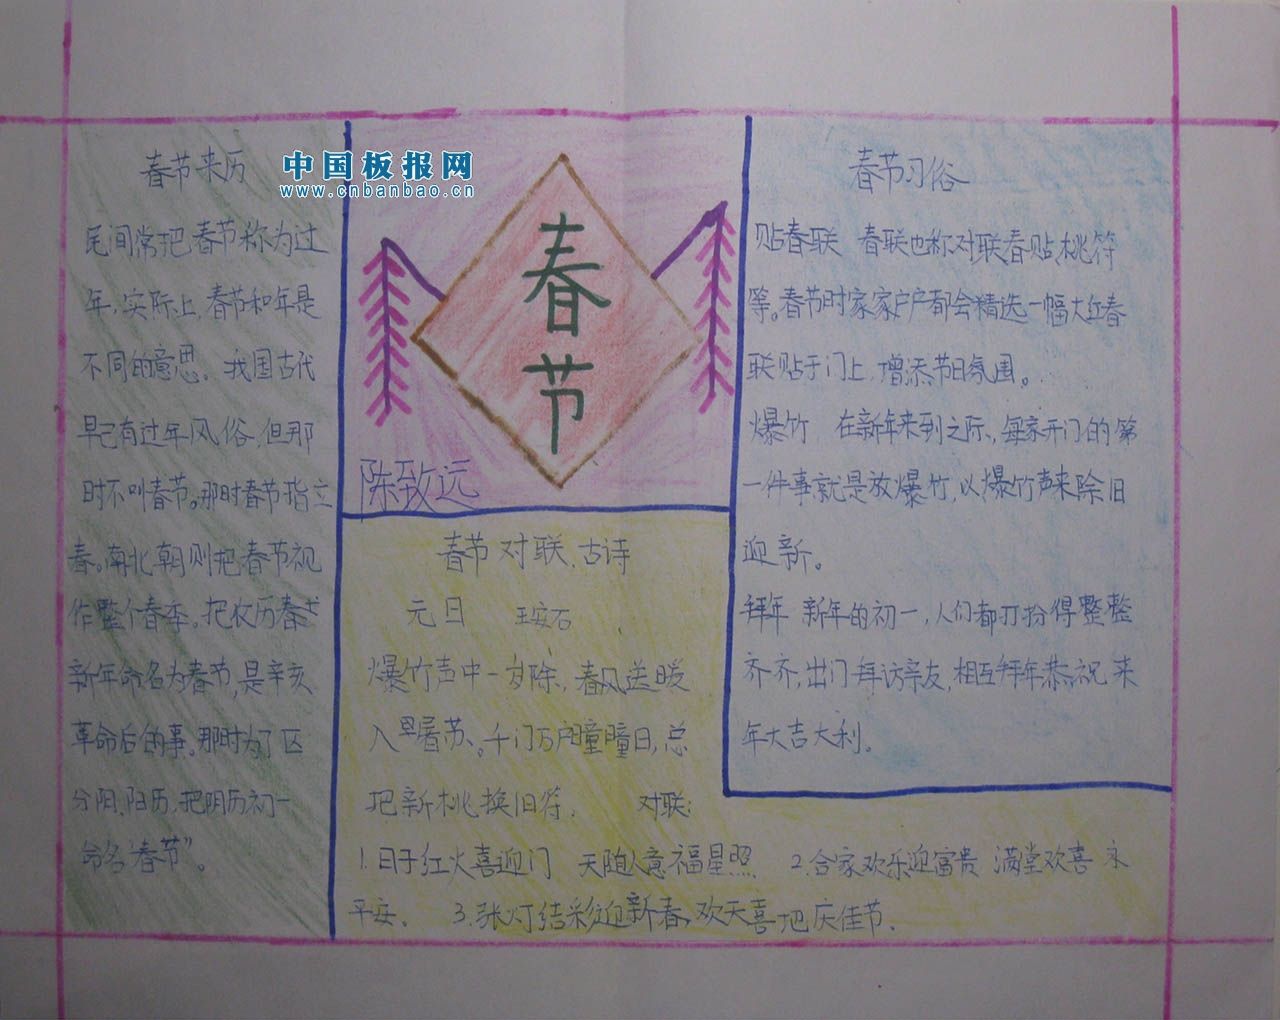 中国板报网
www.cnbanbao.cn
春节来历
民间常把春节称为过
年,实际上,春节和年是
不同的意思。我国古代
早已有过年风俗,但那
时不叫春节。那时春节指立
春。南北朝则把春节视
作整个春季。把农历春节
新年命名为春节,是辛亥
革命后的事。那时为了区
分阴,阳历,把阴历初一
命名“春节”。
春
节
陈致远
春节对联、古诗
元日 王安石
爆竹声中一岁除,春风送暖
入屠苏。千门万户瞳瞳日,总
把新桃换旧符。 对联:
1.日子红火喜迎门 天随人意福星照 2.合家欢乐迎富贵 满堂欢喜永
平安。 3.张灯结彩迎新春,欢天喜地庆佳节.
春节习俗
贴春联 春联也称对联春贴,桃符
等。春节时家家户户都会精选一幅大红春
联贴于门上,增添节日氛围。
爆竹 在新年来到之际,每家开门的第
一件事就是放爆竹,以爆竹声来除旧
迎新。
拜年 新年的初一,人们都打扮得整整
齐齐,出门拜访亲友,相互拜年恭祝来
年大吉大利。